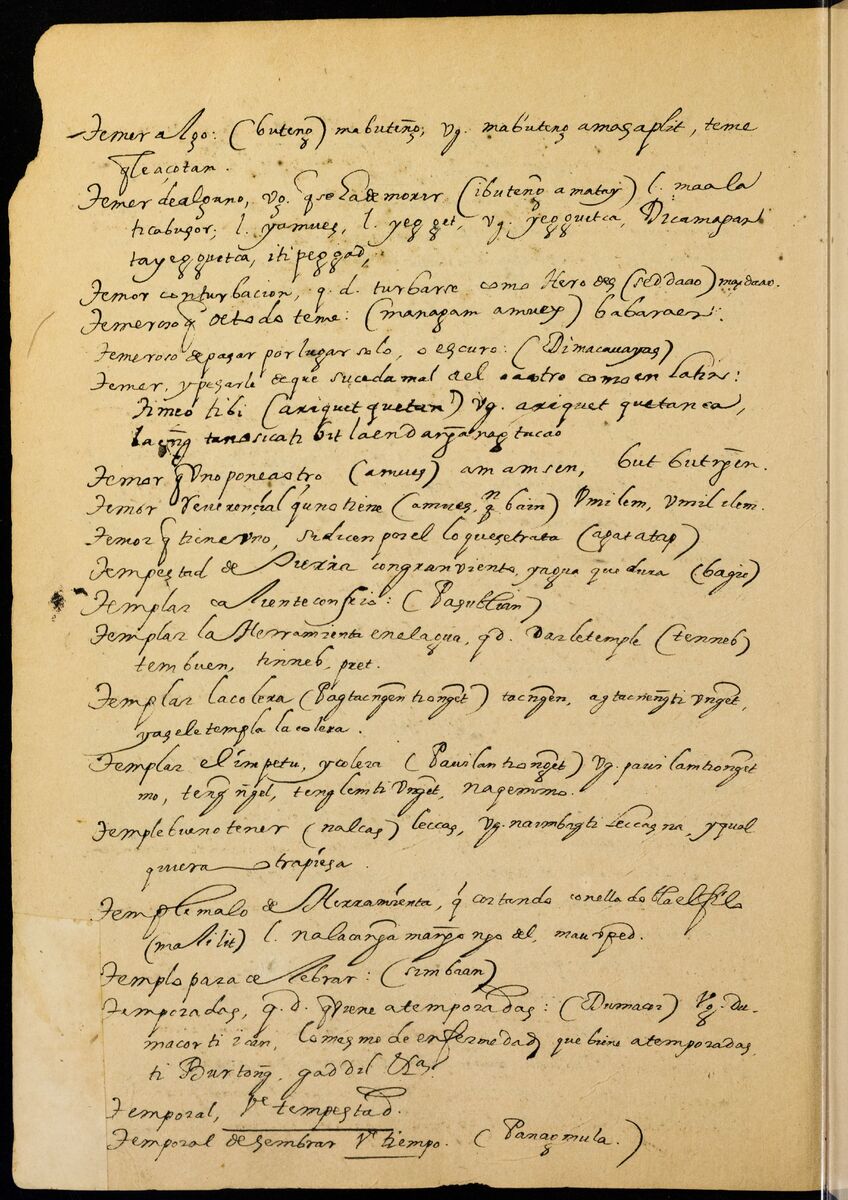 Temer algo: (buteng) mabuteng, vg. mabuteng amasaplit, teme
qͤ le açotan.
Temer de alguno, vg. q̃ se ha de morir (ibuteng a matay) l. maala
ticabusor; l. yamues, l. yegget, vg. yegguetca, Dicamapan
tayegguetca, itipeggad,
Temor conturbacion, q. d. turbarse como Herodes (seddaao) masdaao.
Temeroso q̃ de todo teme: (managam amues) babaraen.
Temeroso de pasar por lugar solo, o escuro: (Dimacauayas)
Temer, y pesarle de que suceda mal a el otro como en latin:
timeo tibi (ariquet quetan) vg. ariquet quetanca,
ti bit
Temor q̃ Uno pone a otro (amues) amamsen, but butngen.
Temor Reverencial q̃ uno tiene (amues, bain) Umilem, umil elem.
Temor q̃ tiene uno, si dicen por el lo que se trata (apatatap)
Tempestad de Sierra con gran viento, y agua que dura (bagio)
Templar caliente con frio: (Pagubbian)
Templar la Herramienta en el agua, qd. Darle temple (tenneb)
tembuen, tinneb, pret.
Templar la colera (Pagtacngen ti ongēt) tacngen, agtacneng ti Unget,
ya se le templa la colera.
Templar el impetu, y colera (Pauilan ti ongēt) vg. pauilam ti ongēt
mo, teng ngel, tenglem ti Unget, nagemmo.
Temple bueno tener (nalcas) leccas, vg. naimbagti leccasna, y qual
quiera otra piesa.
Temple malo de Herramienta, q̃ cortando con ella dobla el filo
(malilit) l. nalaca
Templo para celebrar: (simbaan)
Temporadas, q. d. q̃ viene a temporadas: (Dumacor) Vg. Du-
macor ti lo mesmo de enfermedad, que biene a temporadas
ti Burtong, gaddil &ᵃˢ.
Temporal, Vᵉ tempestad.
Temporal de sembrar Vᵉ tiempo. (Panagmula.)